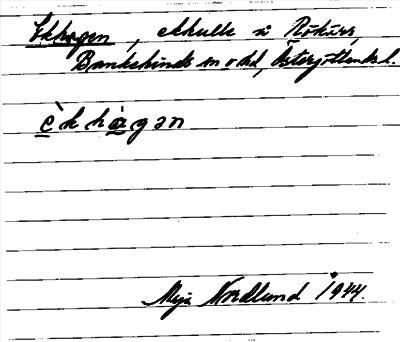 Ekhagen, skulle i Rökärr,
Bankekinds sn o hd, Östergötlands l.
èkhàgən
Maja Nordlund 1944.